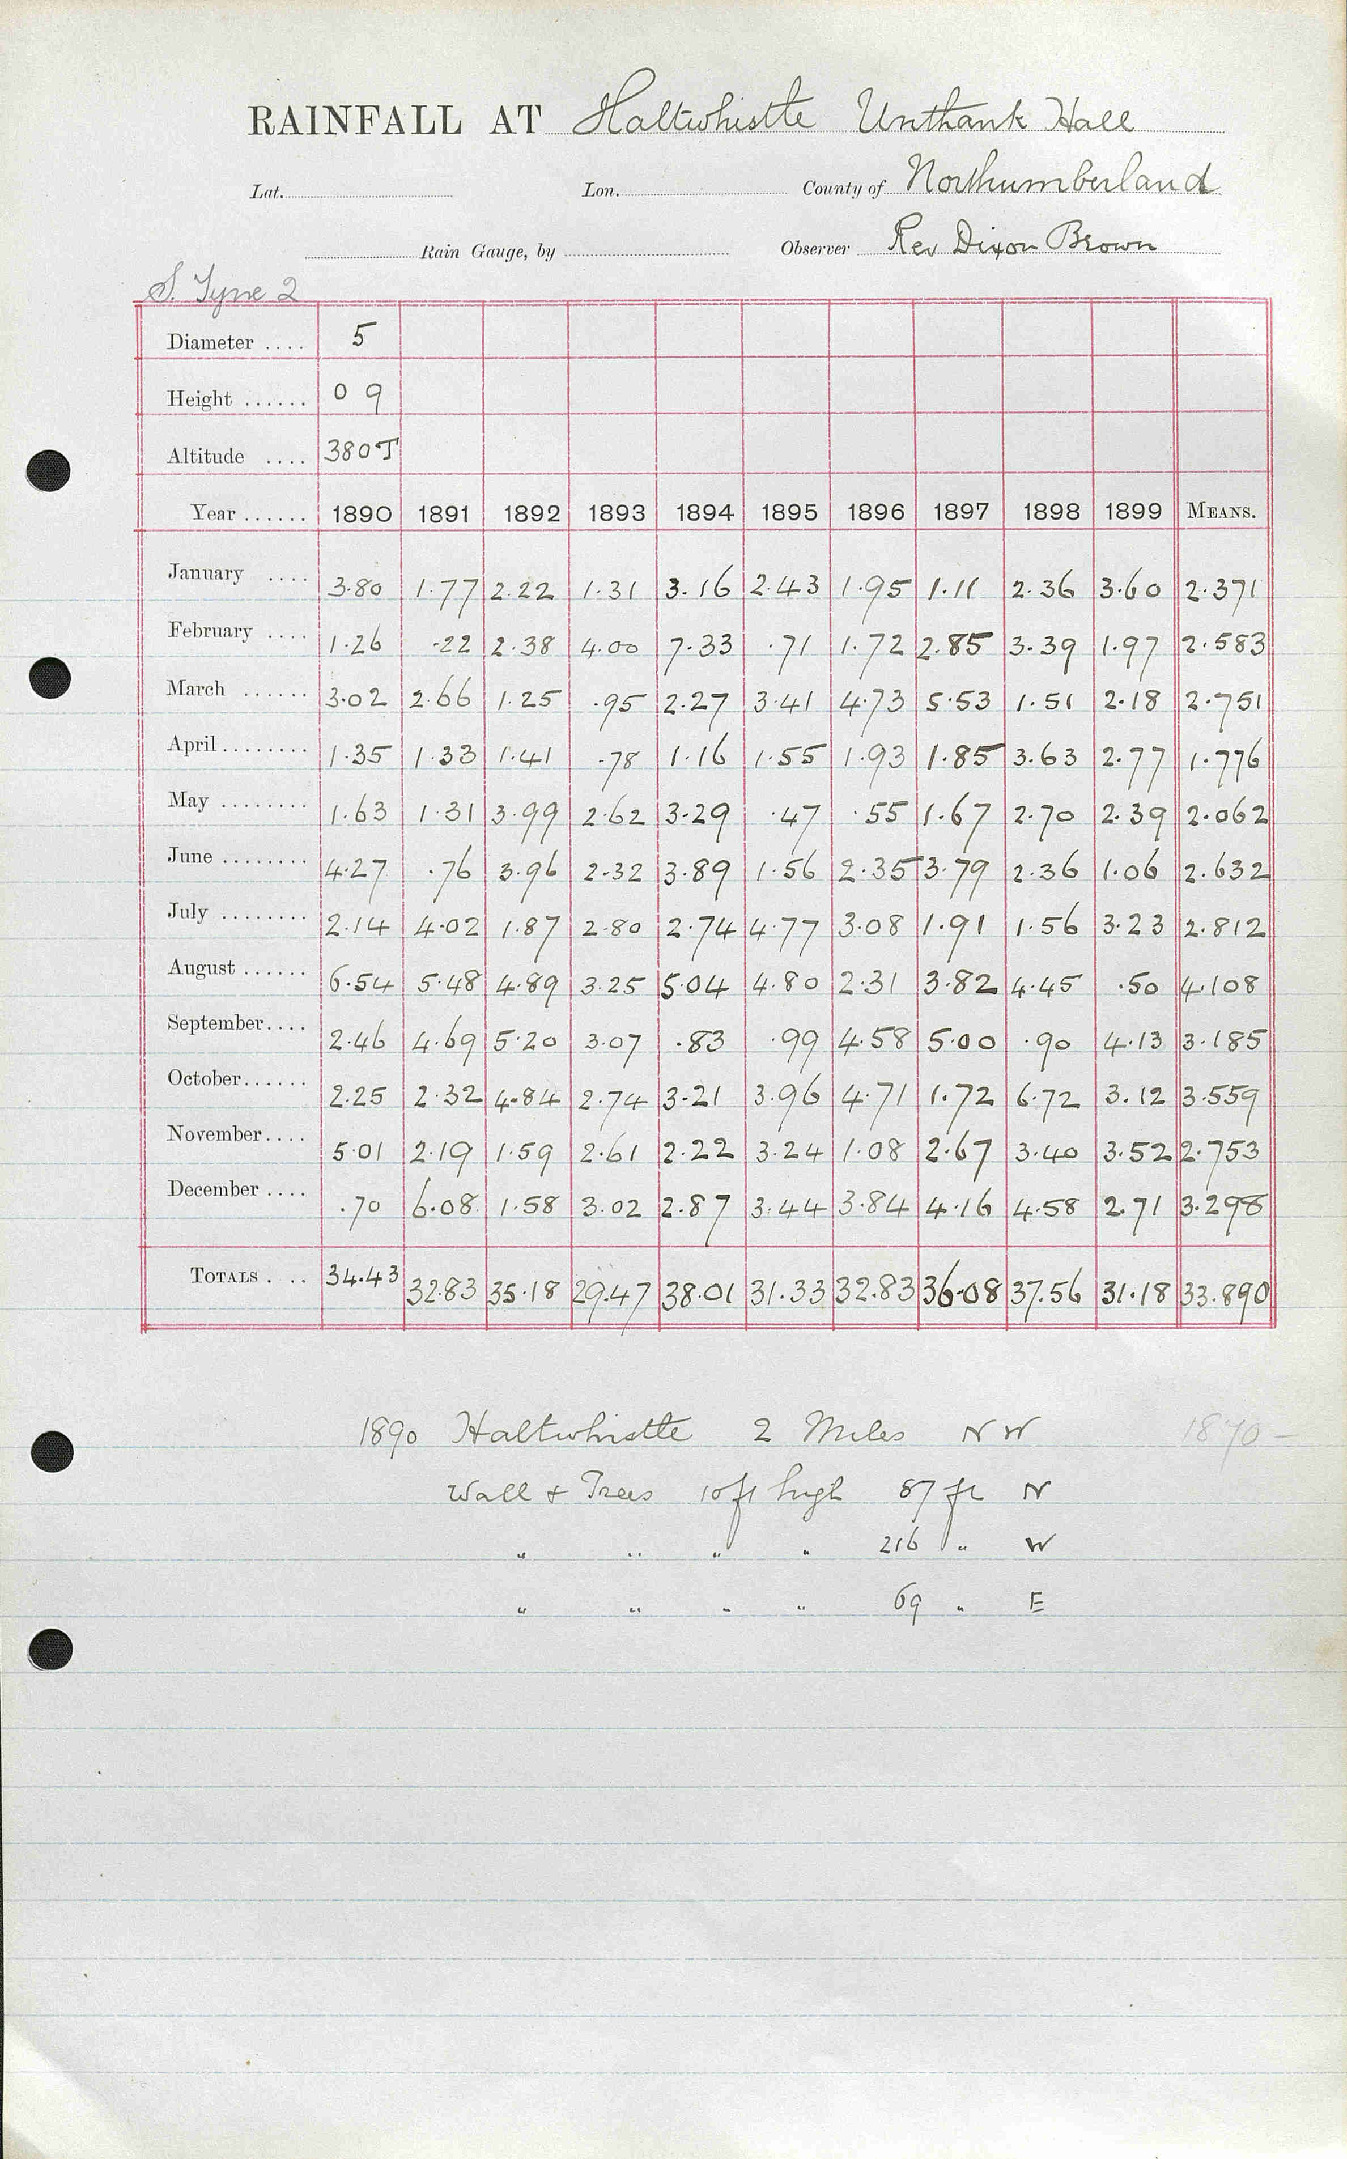 RAINFALL AT Haltwhistle Unthank Hall
Lat. Lon. County of Northumberland
Rain Gauge, by Observer Rev Dixon Brown
S. Tyne 2
Diameter .... 5
Height ...... 0 9
Altitude .... 380T
Year ...... 1890 1891 1892 1893 1894 1895 1896 1897 1898 1899 MEANS.
January .... 3.80 1.77 2.22 1.31 3.16 2.43 1.95 1.11 2.36 3.60 2.371
February .... 1.26 .22 2.38 4.00 7.33 .71 1.72 2.85 3.39 1.97 2.583
March ...... 3.02 2.66 1.25 .95 2.27 3.41 4.73 5.53 1.51 2.18 2.751
April........ 1.35 1.33 1.41 .78 1.16 1.55 1.93 1.85 3.63 2.77 1.776
May ........ 1.63 1.31 3.99 2.62 3.29 .47 .55 1.67 2.70 2.39 2.062
June ........ 4.27 .76 3.96 2.32 3.89 1.56 2.35 3.79 2.36 1.06 2.632
July ........ 2.14 4.02 1.87 2.80 2.74 4.77 3.08 1.91 1.56 3.23 2.812
August ...... 6.54 5.48 4.89 3.25 5.04 4.80 2.31 3.82 4.45 .50 4.108
September.... 2.46 4.69 5.20 3.07 .83 .99 4.58 5.00 .90 4.13 3.185
October...... 2.25 2.32 4.84 2.74 3.21 3.96 4.71 1.72 6.72 3.12 3.559
November.... 5.01 2.19 1.59 2.61 2.22 3.24 1.08 2.67 3.40 3.52 2.753
December .... .70 6.08 1.58 3.02 2.87 3.44 3.84 4.16 4.58 2.71 3.298
TOTALS .... 34.43 32.83 35.18 29.47 38.01 31.33 32.83 36.08 37.56 31.18 33.890
1890 Haltwhistle 2 Miles NW 1870 -
Wall + Trees 10 ft high 87 ft N
" " " " 216 " W
" " " " 69 " E